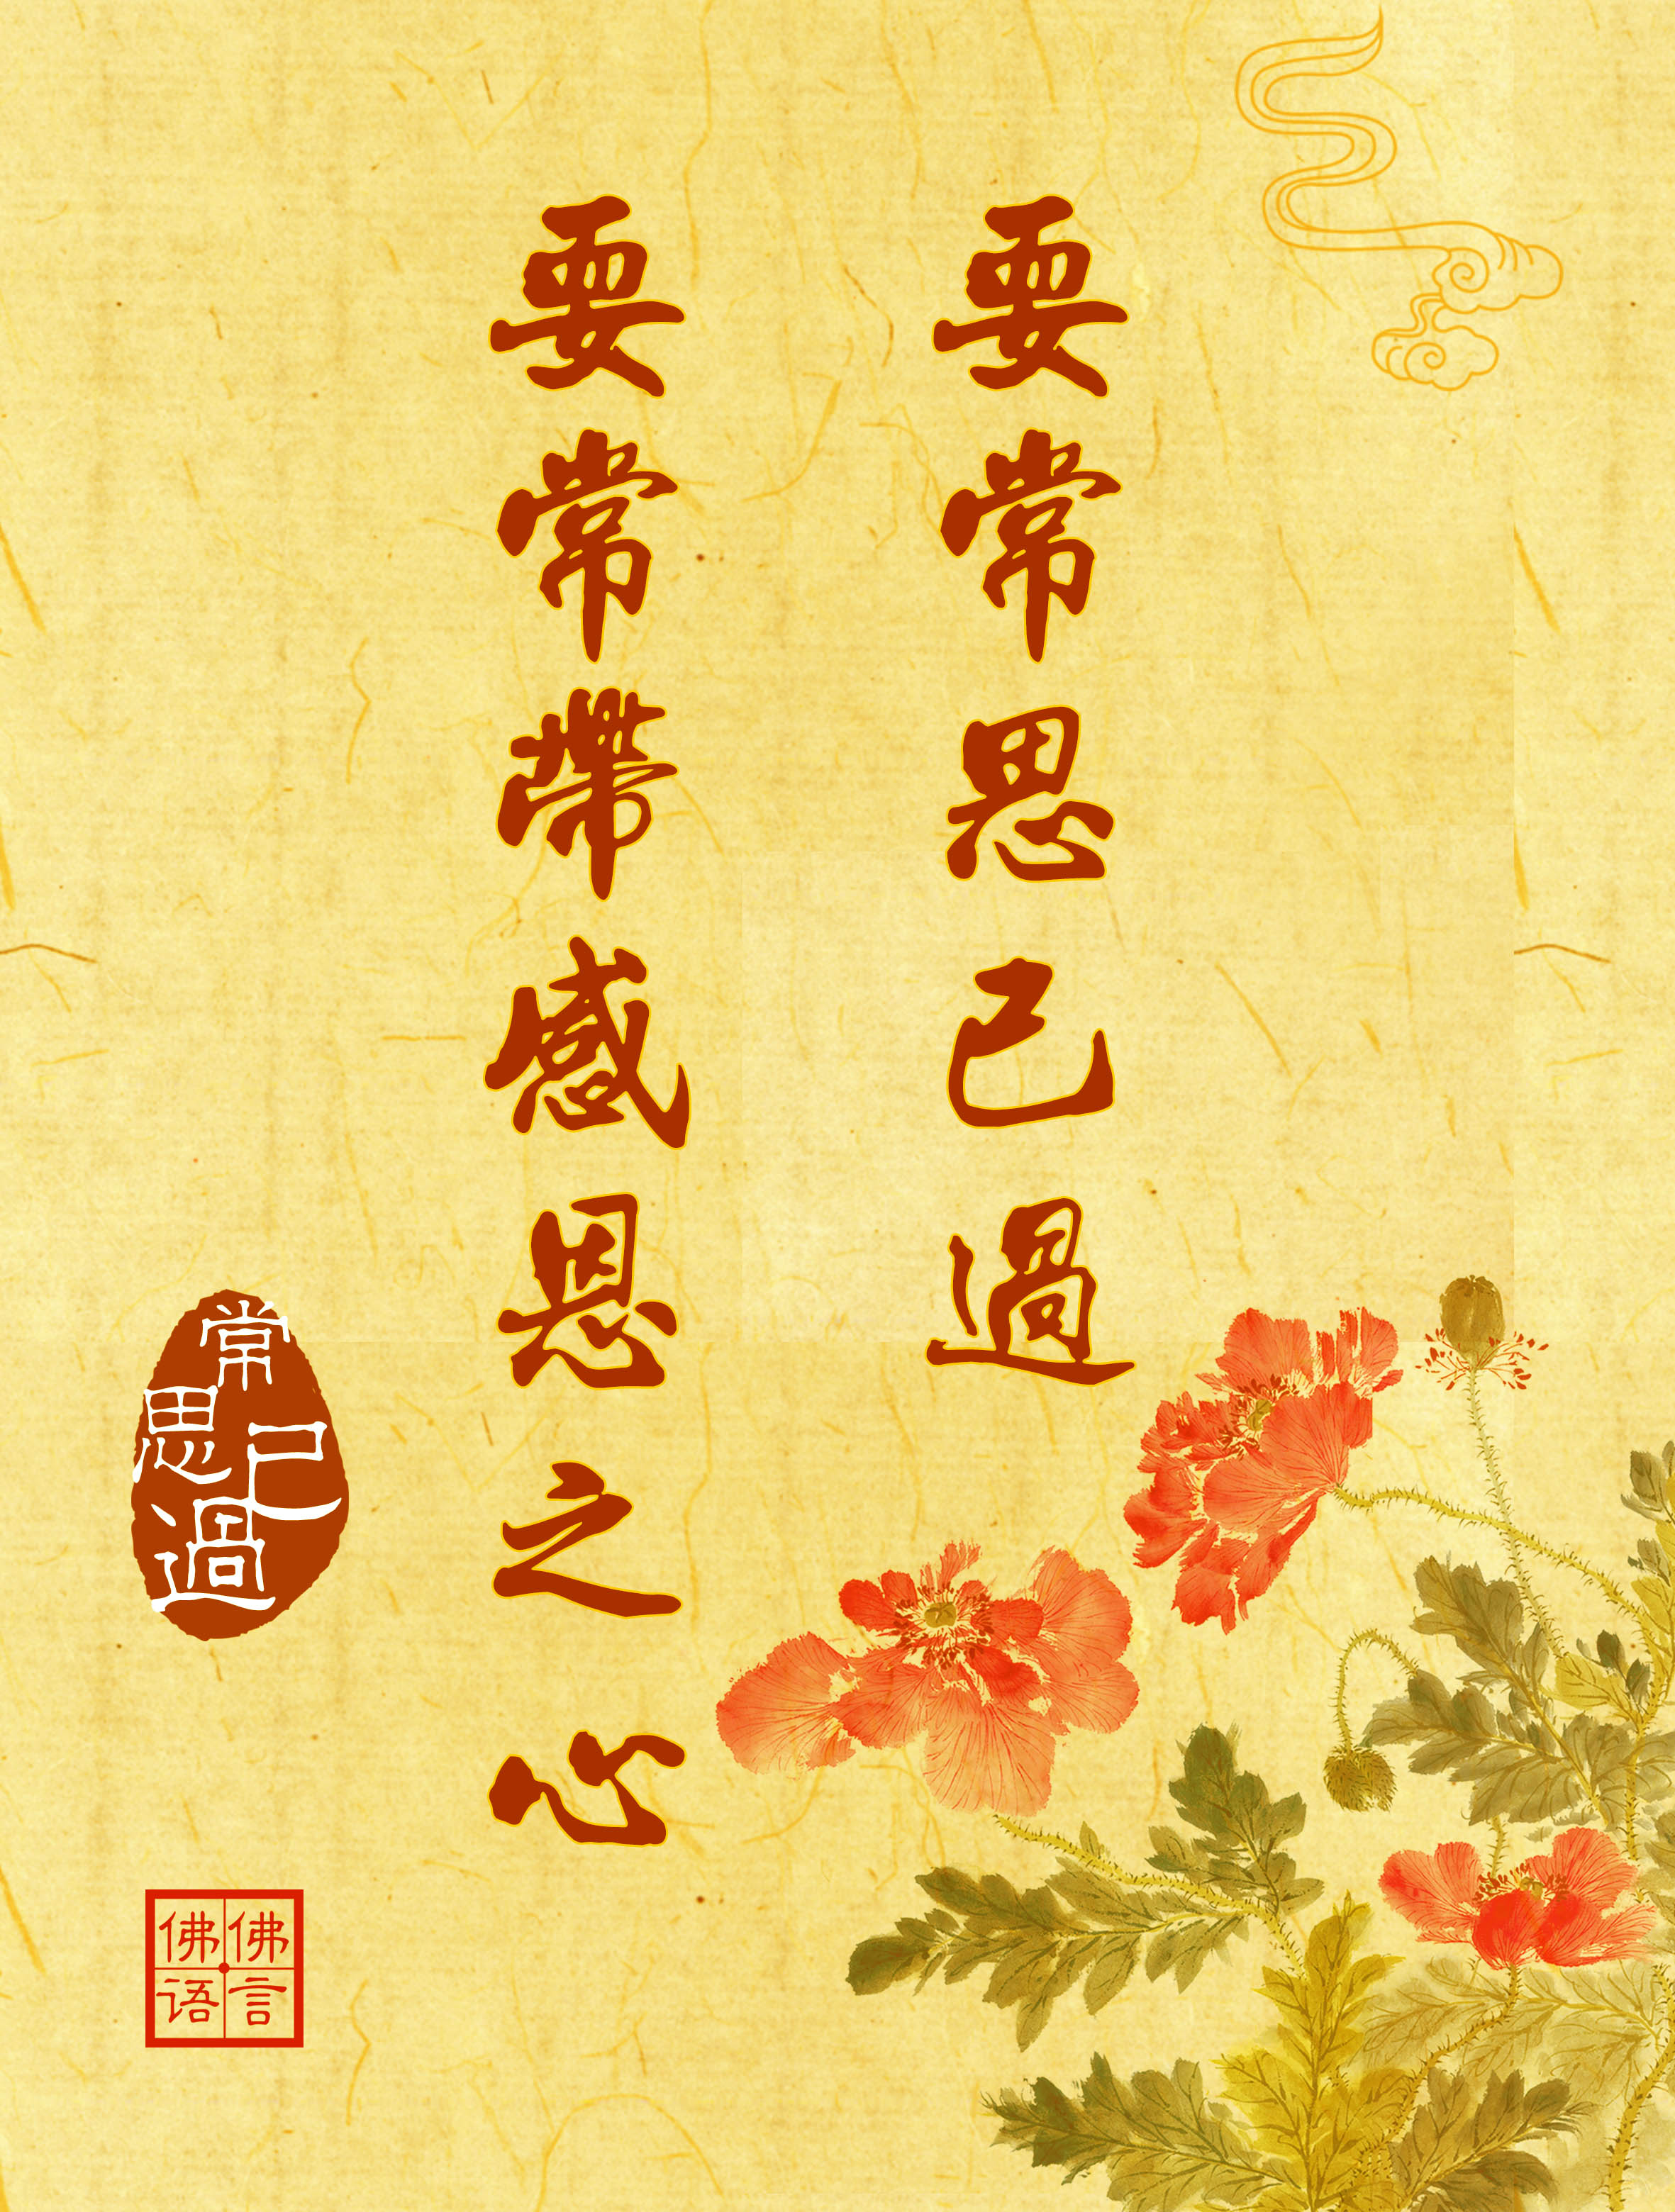 要常思己過
要常帶感恩之心
常思己過
佛言佛语